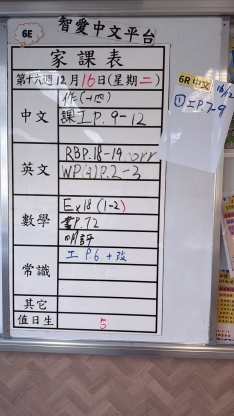 6E
智愛中文平台
家課表
第十六週12月16日(星期二)
中文
作(一)四
課工P.9-12
英文
RBP.18-19 :orr
WP.(4)P.2-3
數學
Ex18 (1-2)
書P.72
明評
常識
工 P.6 + 改
其它
值日生
5
6R中文 16/2
①工P.7-9